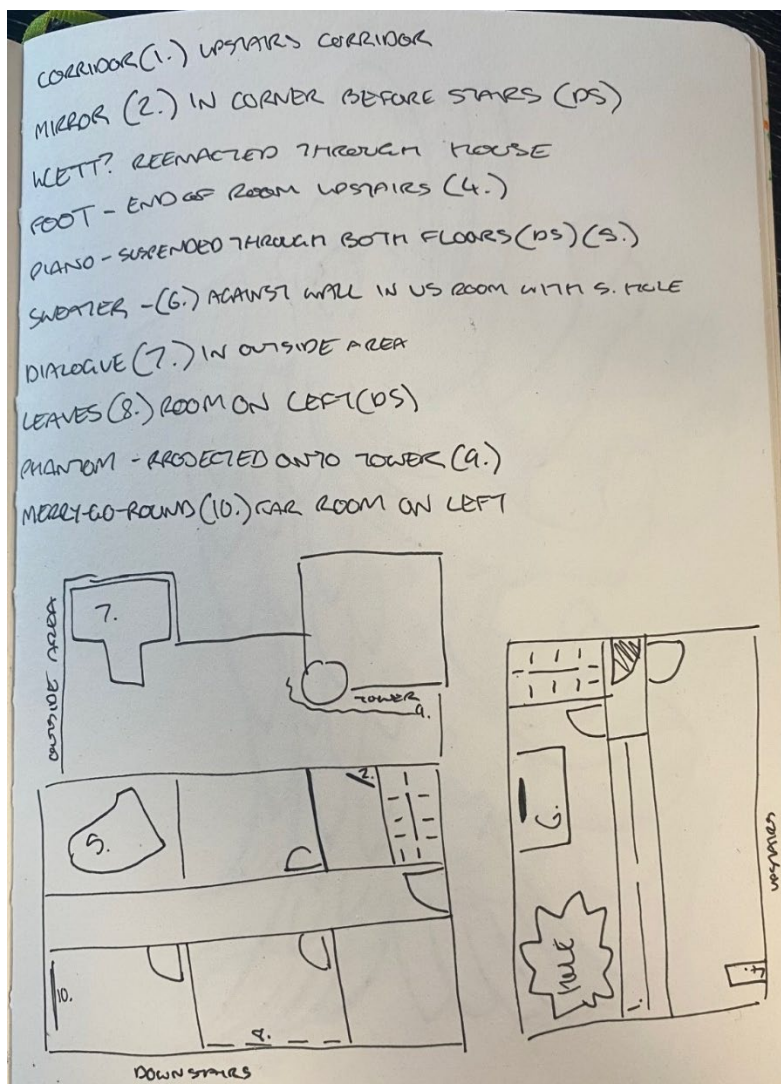 CORRIDOR (1.) UPSTAIRS CORRIDOR
MIRROR (2.) IN CORNER BEFORE STAIRS (DS)
REENACTED THROUGH HOUSE
FOOT - END OF ROOM UPSTAIRS (4.)
PIANO - SUSPENDED THROUGH BOTH FLOORS (DS) (5.)
SWEATER - (6.) AGAINST WALL IN US ROOM WITH 5. HOLE
DIALOGUE (7.) IN OUTSIDE AREA
LEAVES (8.) ROOM ON LEFT (DS)
PHANTOM - PROJECTED ONTO TOWER (9.)
MERRY-GO-ROUND (10.) FAR ROOM ON LEFT
OUTSIDE AREA
7.
TOWER
9.
2.
5.
10.
8.
DOWNSTAIRS
6.
HOLE
1.
4.
UPSTAIRS